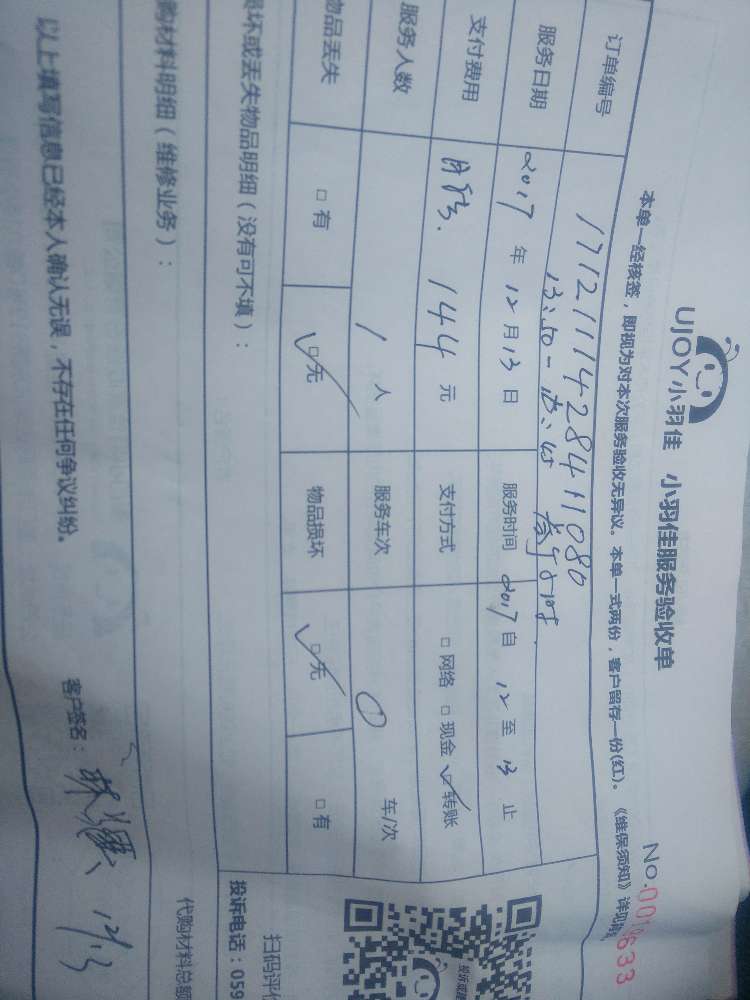 UJOY小羽佳 小羽佳服务验收单
No.
633
本单一经核签，即视为对本次服务验收无异议。本单一式两份，客户留存一份(红)。《维保须知》详见
订单编号 17121114284411080
13:50-
服务日期 2017 年 12 月 13 日 服务时间 2017 自 12 至 13 止
支付费用 月结. 144 元 支付方式 □ 网络 □ 现金 ☑ 转账
服务人数 1 人 服务车次 0 车/次
物品丢失 □ 有 ☑ 无 物品损坏 ☑ 无 □ 有
坏或丢失物品明细（没有可不填）：
购材料明细（维修业务）：
代购材料总额
以上填写信息已经本人确认无误，不存在任何争议纠纷。 客户签名： 12/13
扫码评价
投诉电话：059